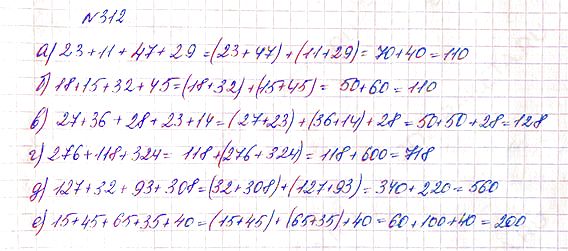 №312
а) 23+11+47+29=(23+47)+(11+29)=70+40=110
б) 18+15+32+45=(18+32)+(15+45)= 50+60=110
в) 27+36+28+23+14=(27+23)+(36+14)+28=50+50+28=128
г) 276+118+324= 118+(276+324)=118+600=718
д) 127+32+93+308=(32+308)+(127+93)=340+220=560
е) 15+45+65+35+40=(15+45)+(65+35)+40=60+100+40=200